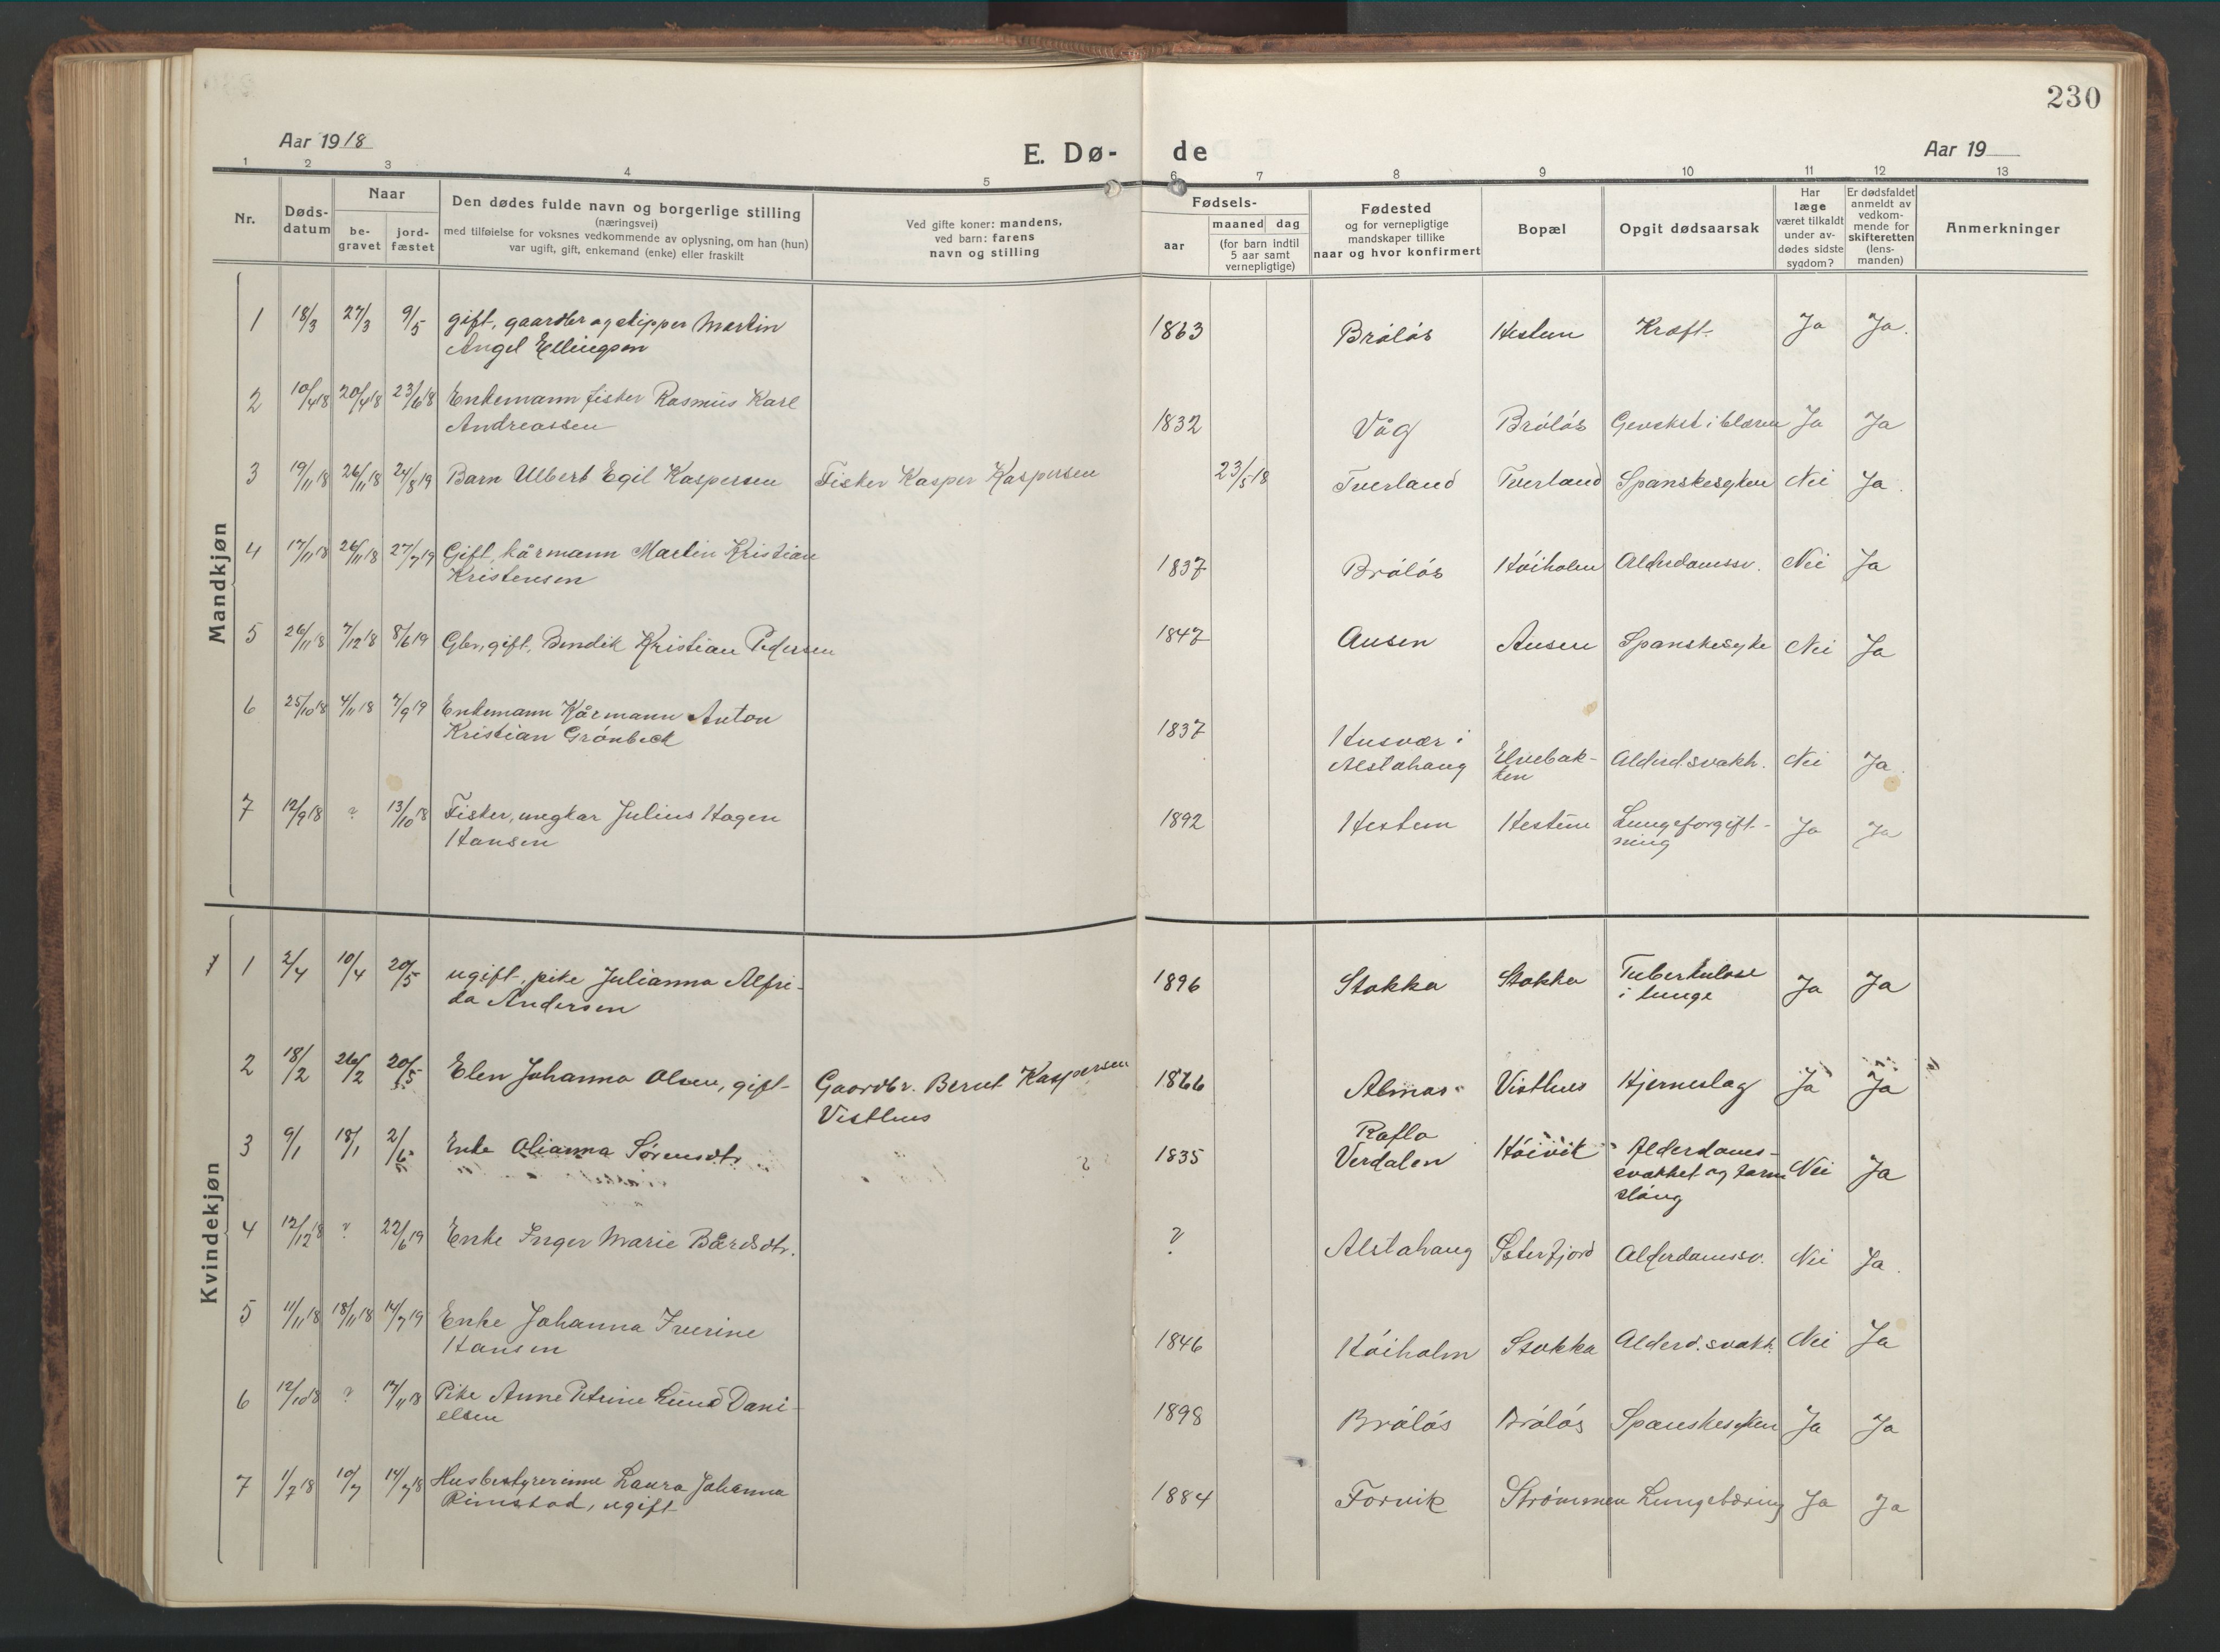 230
Aar 1918
E. Dø- de
Aar 19
1 2 3 4 5 6 7 8 9 10 11 12 13
Nr.
Døds-
datum
Naar
be-
gravet
jord-
fæstet
Den dødes fulde navn og borgerlige stilling
(næringsvei)
med tilføielse for voksnes vedkommende av oplysning, om han (hun)
var ugift, gift, enkemand (enke) eller fraskilt
Ved gifte koner: mandens,
ved barn: farens
navn og stilling
Fødsels-
aar
maaned dag
(for barn indtil
5 aar samt
vernepligtige)
Fødested
og for vernepligtige
mandskaper tillike
naar og hvor konfirmert
Bopæl
Opgit dødsaarsak
Har
læge
været tilkaldt
under av-
dødes sidste
sygdom?
Er dødsfaldet
anmeldt av
vedkom-
mende for
skifteretten
(lens-
manden)
Anmerkninger
Mandkjøn
1 18/3 27/3 9/5 gift, gaardbr og skipper Martin
Angel Ellingsen
1863 Brålås Hestun Kræft. Ja Ja.
2 10/4 18 20/4 18 23/6 18 Enkemann fisker Rasmus Karl
Andreassen
1832 Våg Brålås i blæren Ja Ja
3 19/11 18 26/11 18 24/8 19 Barn Ulbert Egil Kaspersen Fisker Kasper Kaspersen 23/5 18 Tverland Tverland Spanskesyken Nei Ja.
4 17/11 18 26/11 18 27/7 19 Gift, kårmann Martin Kristian
Kristensen
1837 Brålås Høiholm Alderdomssv. Nei Ja
5 26/11 18 7/12 18 8/6 19 Gbr, gift, Bendik Kristian Pedersen 1847 Ausen Ausen Spanskesyke Nei Ja
6 25/10 18 4/11 18 7/9 19 Enkemann Kårmann Anton
Kristian Grønbeck
1837 Husvær i
Alstahaug
Elvebak-
ken
Alderd.svakh. Nei Ja.
7 12/9 18 ? 13/10 18 Fisker, ungkar Julius Hagen
Hansen
1892 Hestun Hestun Lungeforgift-
ning
Ja Ja
Kvindekjøn
1 2/4 10/4 20/5 ugift, pike Julianna Alfri-
da Andersen
1896 Stokka Stokka Tuberkulose
i lunge
Ja Ja
2 18/2 26/2 20/5 Elen Johanna Olsen, gift Gaardbr. Berut Kaspersen
Visthus
1866 Almas Visthus Hjerneslag Ja Ja
3 9/1 18/1 2/6 Enke Olianna Sørensdt. 1835 Rafla
Verdalen
Høivik Alderdoms-
svakhet og tarm
slång
Nei Ja
4 12/12 18 ? 22/6 19 Enke Inger Marie Bårdsdtr. ? Alstahaug Alderdomssv. Nei Ja.
5 11/11 18 18/11 18 14/7 19 Enke Johanna Iverine
Hansen
1846 Høiholm Stokka Alderd.svakh. Nei Ja
6 12/10 18 ? 17/11 18 Pike Anne Petrine Lund Dani-
elsen
1898 Brålås Brålås Spanskesyken Ja Ja
7 1/7 18 10/7 14/7 18 Husbestyrerinne Laura Johanna
Rimstad, ugift
1884 Forvik Strømmen Lungetæring Ja Ja